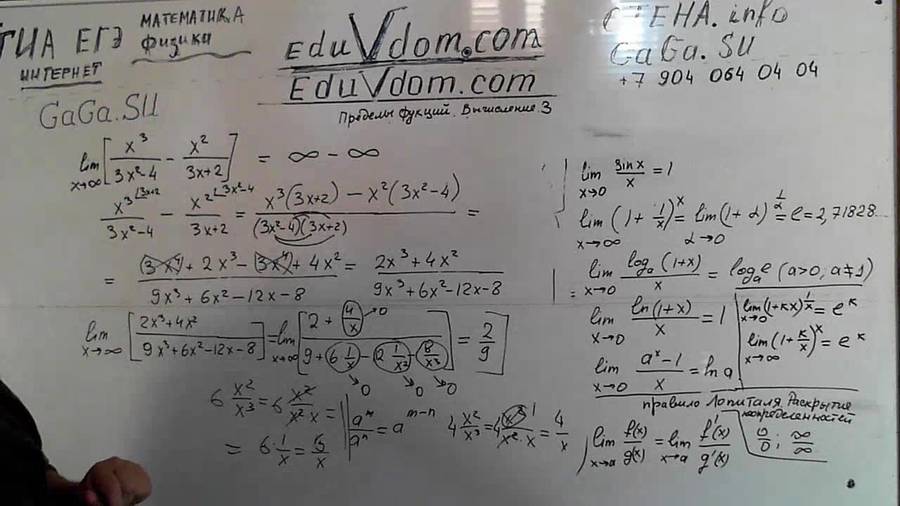 ГИА ЕГЭ
МАТЕМАТИКА
физика
ИНТЕРНЕТ
EduVdom.com
EduVdom.com
СТЕНА.info
GaGa.SU
+7 904 064 04 04
GaGa.SU
Пределы фукций. Вычисление. 3
lim x→∞ [x³/(3x²-4) - x²/(3x+2)] = ∞ - ∞
x³ ⌊3x+2/(3x²-4) - x² ⌊3x²-4/(3x+2) = (x³(3x+2) - x²(3x²-4))/((3x²-4)(3x+2)) =
= ((3x⁴) + 2x³ - (3x⁴) + 4x²)/(9x³ + 6x² - 12x - 8) = (2x³ + 4x²)/(9x³ + 6x² - 12x - 8) =
lim x→∞ [(2x³+4x²)/(9x³+6x²-12x-8)] = lim x→∞ [(2 + 4/x →0)/(9 + 6 1/x - 12 1/x² - 8/x³)] = 2/9
→0 →0 →0
6 x²/x³ = 6 x²/(x²·x) =
= 6·1/x = 6/x
aᵐ/aⁿ = aᵐ⁻ⁿ
4 x²/x³ = 4 x² 1/(x²·x) = 4/x
lim x→0 sin x/x = 1
lim x→∞ (1 + 1/x)ˣ = lim α→0 (1+α)^(1/α) = e = 2,71828...
lim x→0 logₐ(1+x)/x = logₐe (a>0, a≠1)
lim x→0 ln(1+x)/x = 1
lim x→0 (1+кx)^(1/x) = eᵏ
lim x→∞ (1+к/x)ˣ = eᵏ
lim x→0 (aˣ-1)/x = ln a
правило Лопиталя. Раскрытие
неопределенностей
lim x→a f(x)/g(x) = lim x→a f'(x)/g'(x)
0/0 ; ∞/∞